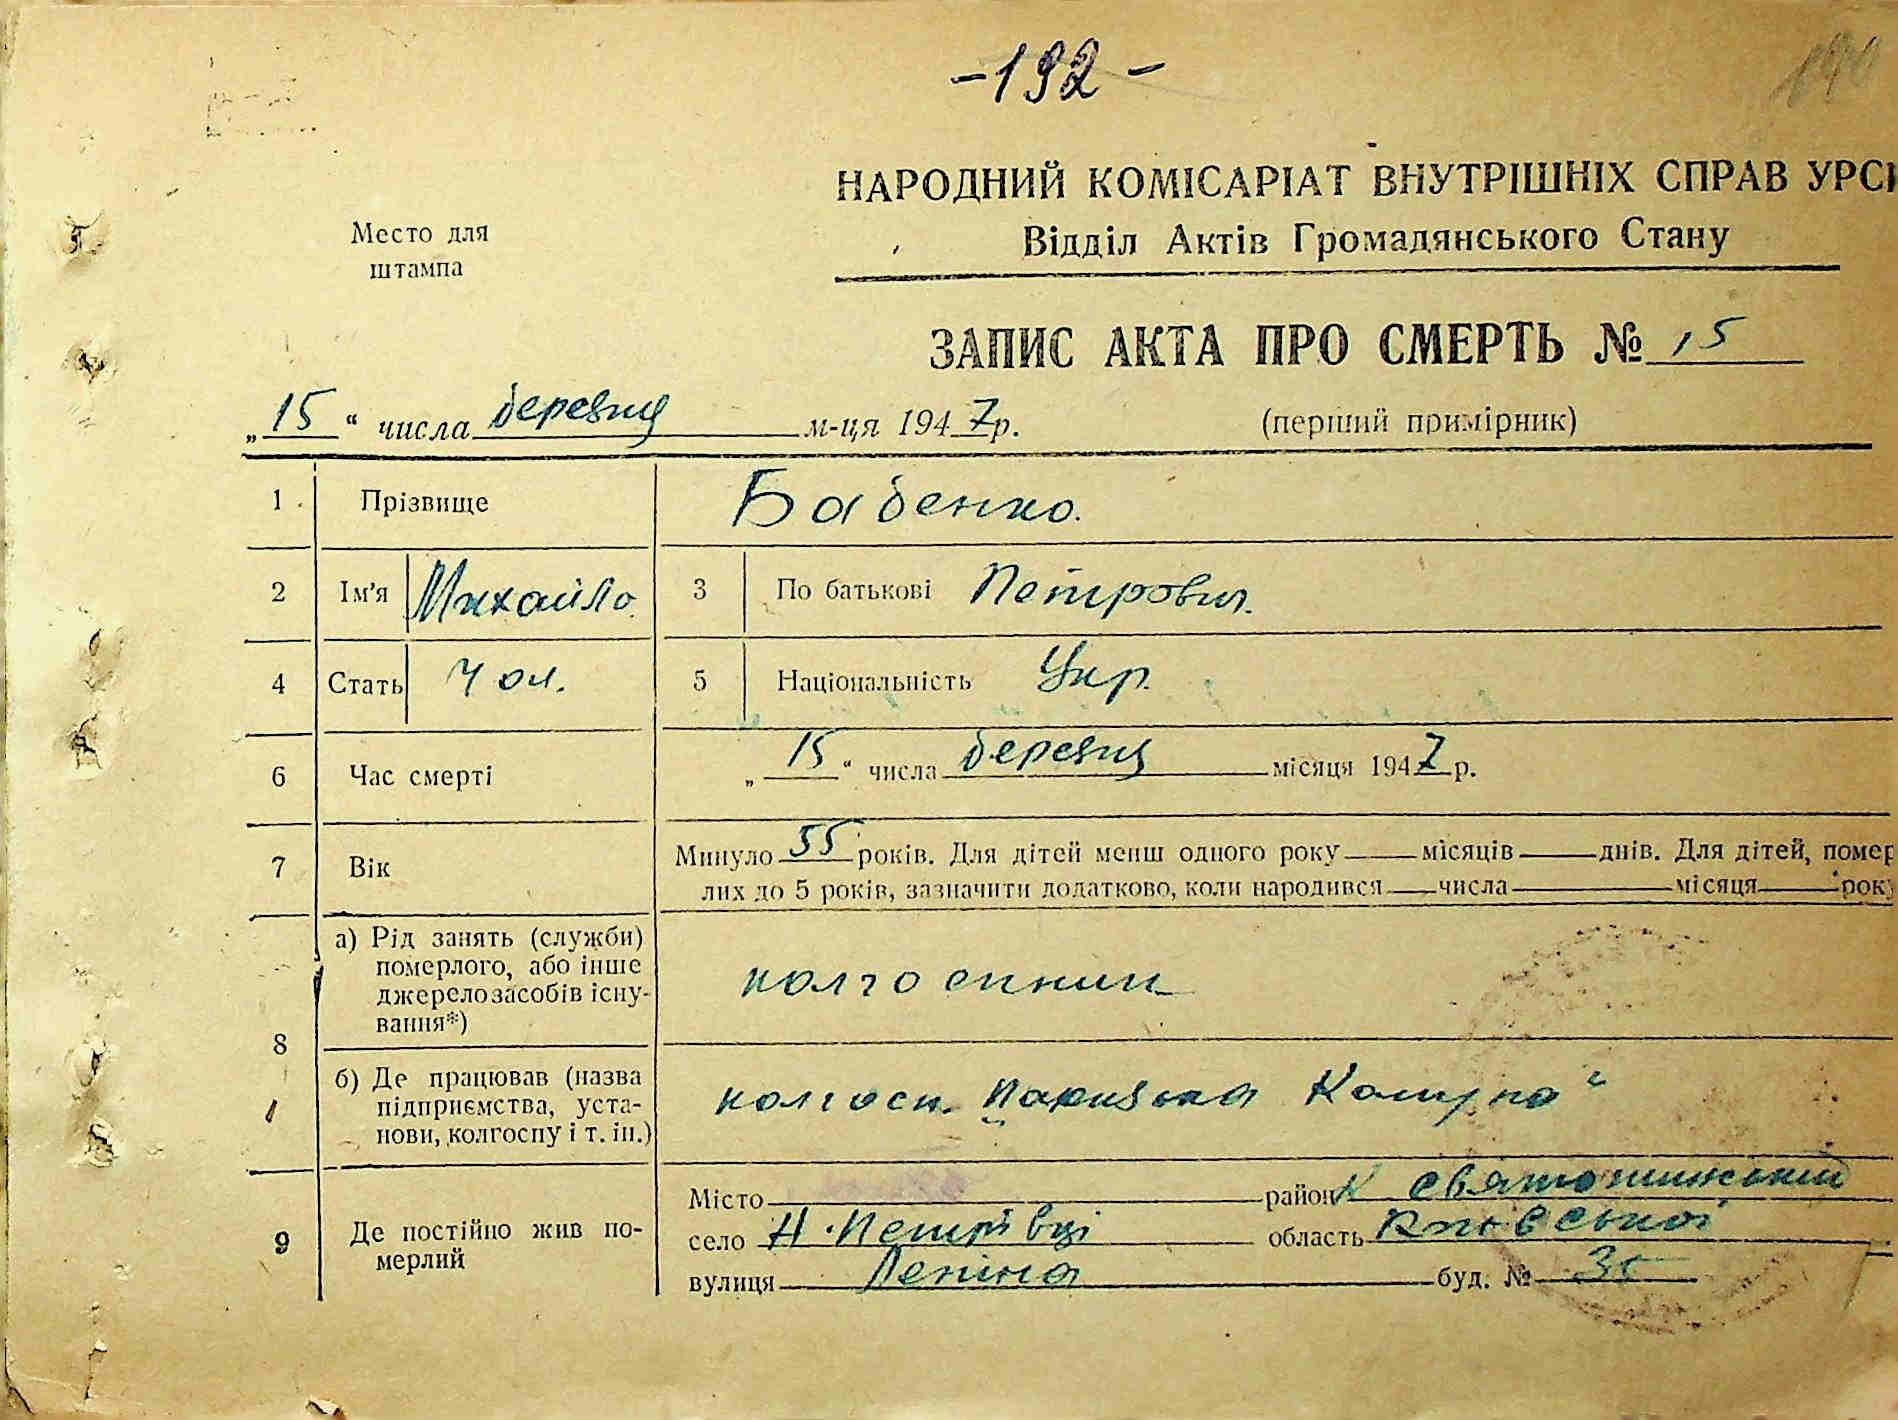 -192-
190
НАРОДНИЙ КОМІСАРІАТ ВНУТРІШНІХ СПРАВ УРСР
Место для штампа
Відділ Актів Громадянського Стану
ЗАПИС АКТА ПРО СМЕРТЬ № 15
„15“ числа березня м-ця 1947 р. (перший примірник)
1 Прізвище Бабенко.
2 Ім'я Михайло 3 По батькові Петрович.
4 Стать чол. 5 Національність Укр.
6 Час смерті „15“ числа березня місяця 1947 р.
7 Вік Минуло 55 років. Для дітей менш одного року місяців днів. Для дітей, помер
лих до 5 років, зазначити додатково, коли народився числа місяця року
8 а) Рід занять (служби)
померлого, або інше
джерело засобів існу-
вання*) колгоспник
б) Де працював (назва
підприємства, уста-
нови, колгоспу і т. ін.) колгосп. „Паризька Комуна“
9 Де постійно жив по-
мерлий
Місто район К Святошинський
село Н.Петрівці область Київської
вулиця Леніна буд. № 35